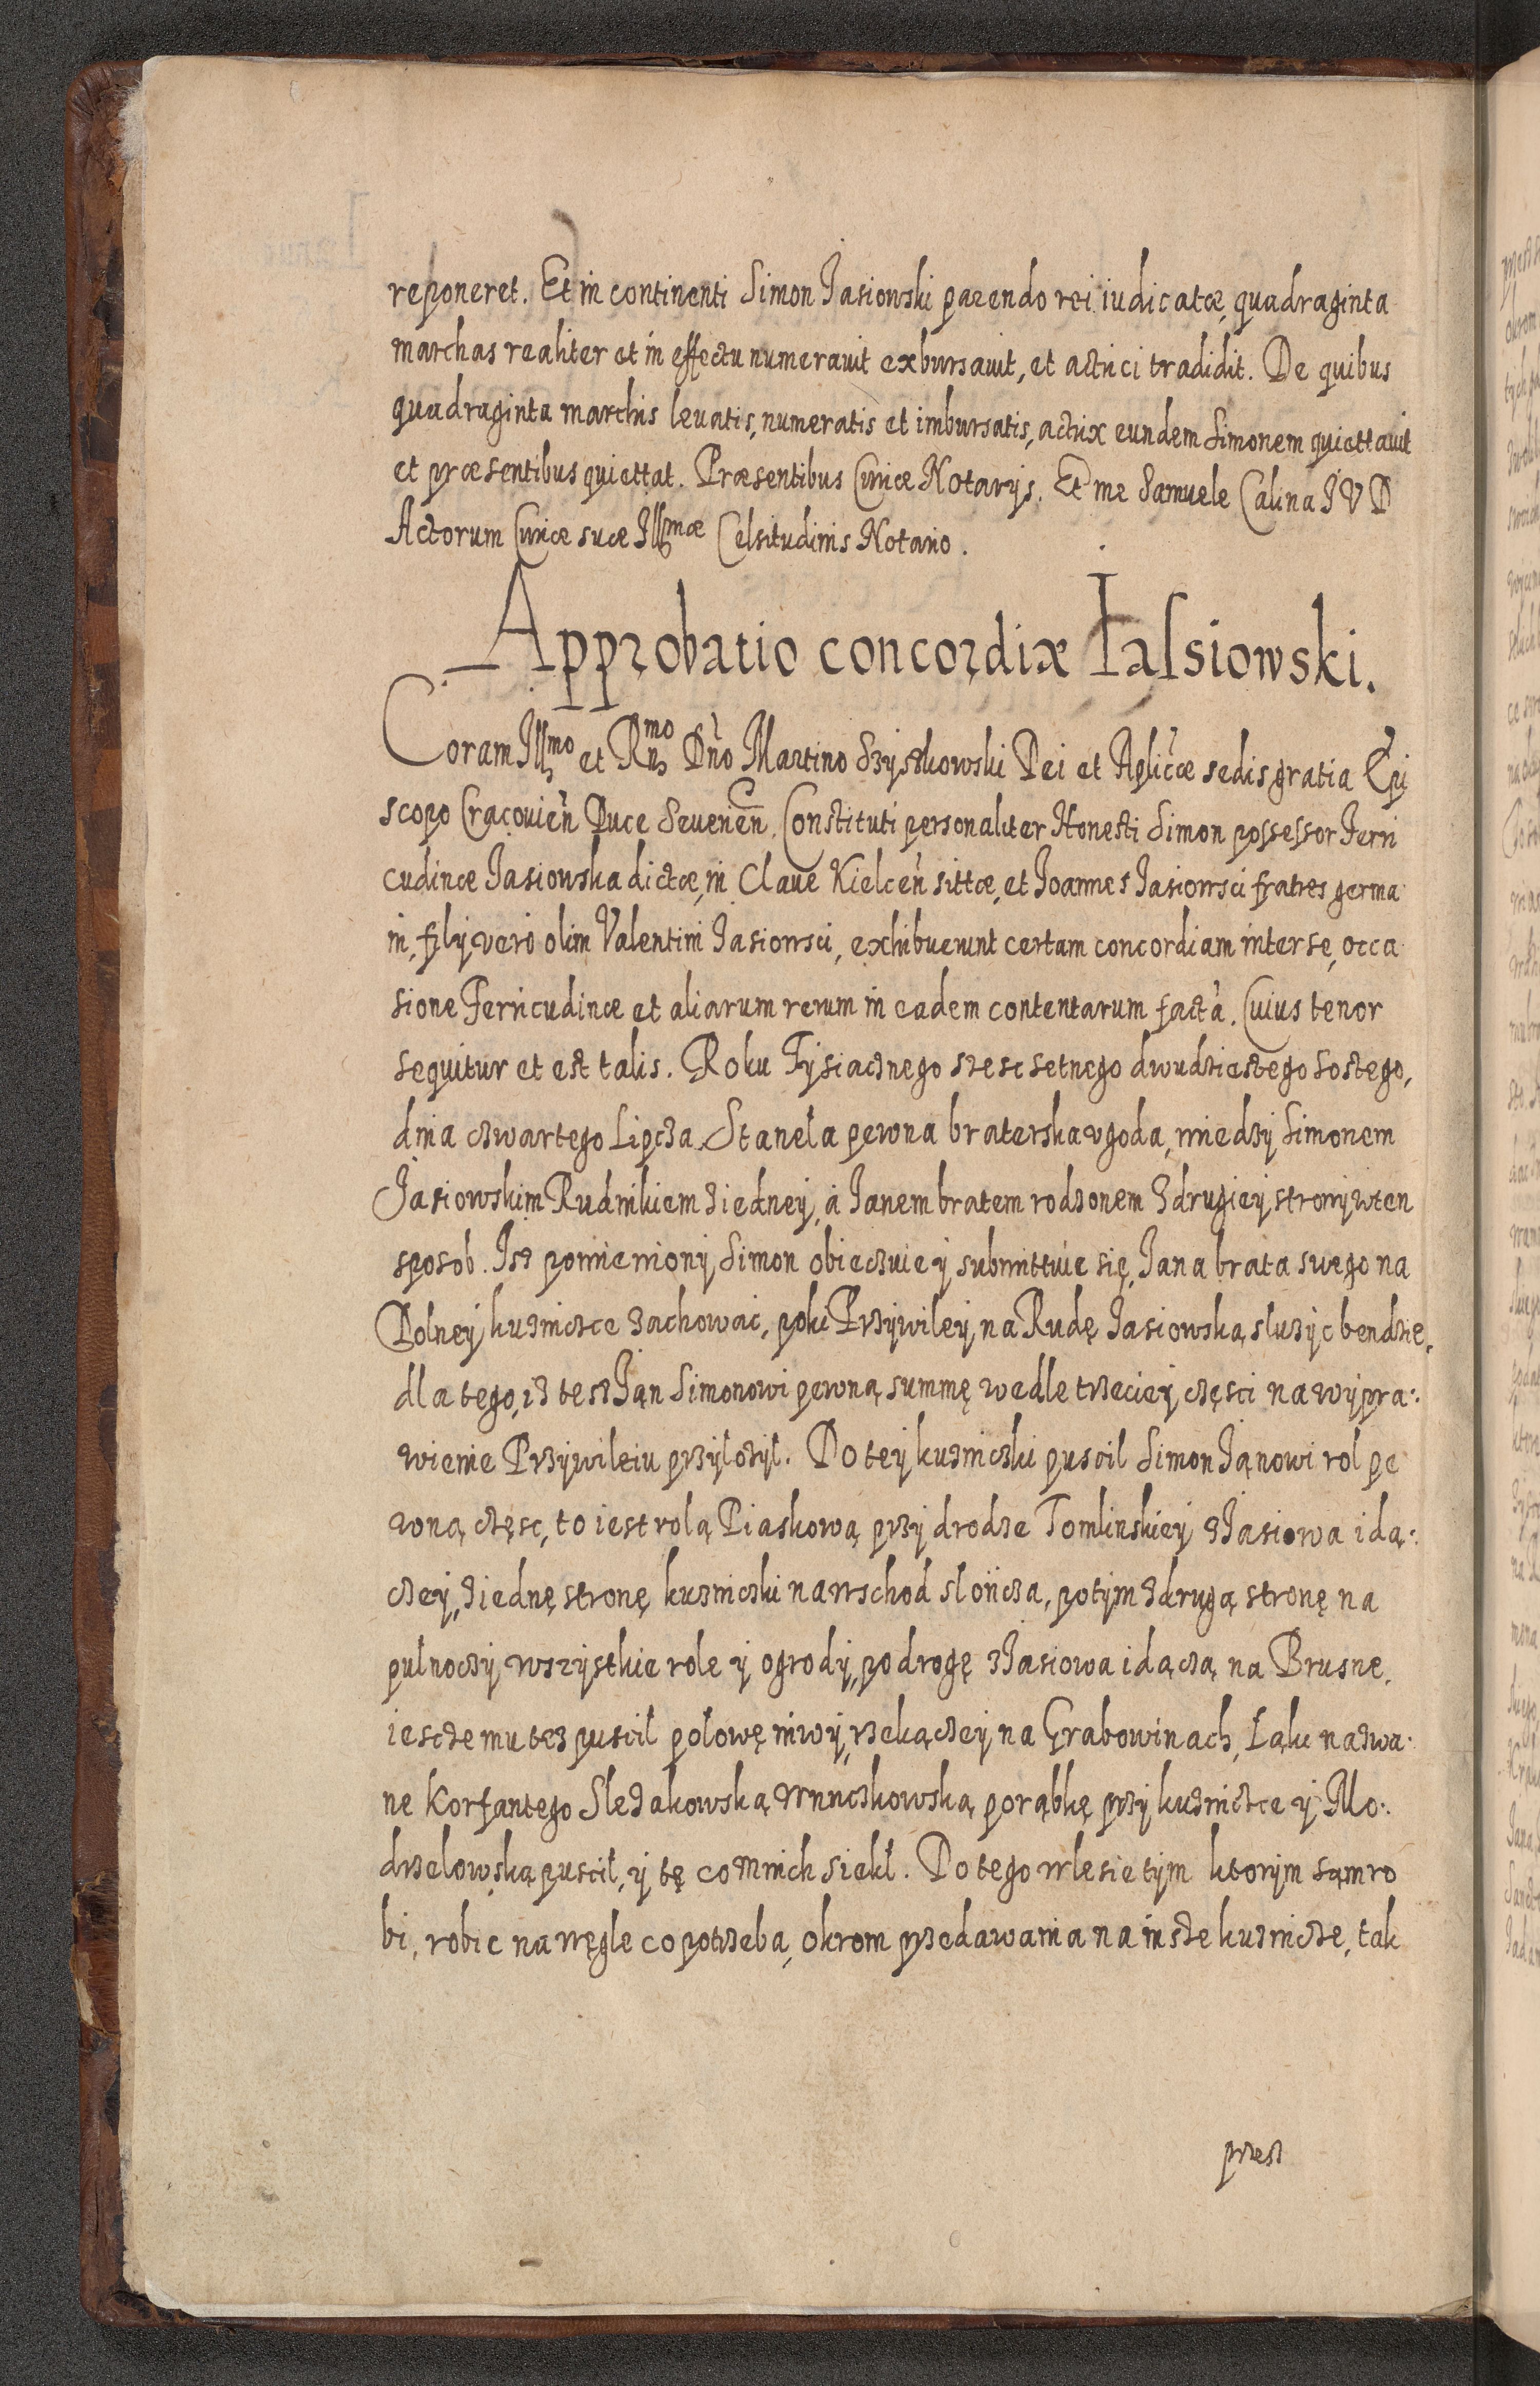 reponeret. Et in continenti Simon Jasiowski parendo rei iudicatæ, quadraginta
marchas realiter et in effectu numerauit exbursauit, et actrici tradidit. De quibus
quadraginta marchis leuatis, numeratis et imbursatis, actrix eundem Simonem quiettauit
et præsentibus quiettat. Præsentibus Curiæ Notarijs. Et me Samuele Calina J V D
Actorum Curiæ suæ Illmæ Celsitudinis Notario.
Approbatio concordiæ Iassiowski.
Coram Illmo et Rmo Dno Martino Szyszkowski Dei et Aplicæ sedis gratia Epi
scopo Cracouien Duce Seuerien. Constituti personaliter Honesti Simon possessor Ferri
cudinæ Jasiowska dictæ, in Claue Kielcen sittæ, et Joannes Jasiowsci fratres germa
ni, filij vero olim Valentini Jasiowsci, exhibuerunt certam concordiam inter se, occa
sione Ferricudinæ et aliarum rerum in eadem contentarum facta. Cuius tenor
sequitur et est talis. Roku Tysiacznego szesc setnego dwudziestego sostego,
dnia czwartego Lipcza. Stanela pewna braterska vgoda, miedzy Simonem
Jasiowskim Rudnikiem z iedney, a Janem bratem rodzonem z drugiey strony wten
sposob. Isz pomieniony Simon obieczuie y submittuie się, Jana brata swego na
Dolney kuzniczce zachowac, poki Przywiley na Rudę Jasiowską sluzyc bendzie,
dla tego, iz tesz Jan Simonowi pewną summę wedle trzeciey częsci na wypra:
wienie Przywileiu przylozyl. Do tey kuzniczki puscil Simon Janowi rol pe
wną częsc, to iest rolą Piaskową przy drodze Tomlinskiey z Jasiowa idą:
czey, z iednę stronę kuzniczki na wschod slończa, potym z drugą stronę na
pulnoczy wszystkie role y ogrody, po drogę z Jasiowa idączą na Brusne.
iescze mu tez puscil polowę niwy, rzekączey na Grabowinach, Ląki nazwa:
ne Korfantego Slezakowską Wnuczkowską porąbkę przy kuzniczce y Mo:
drzelowską puscil, y tę co Mnich siekl. Do tego w lesie tym ktorym sam ro
bi, robic na węgle co potrzeba, okrom przedawania na insze kuznicze, tak
przesz